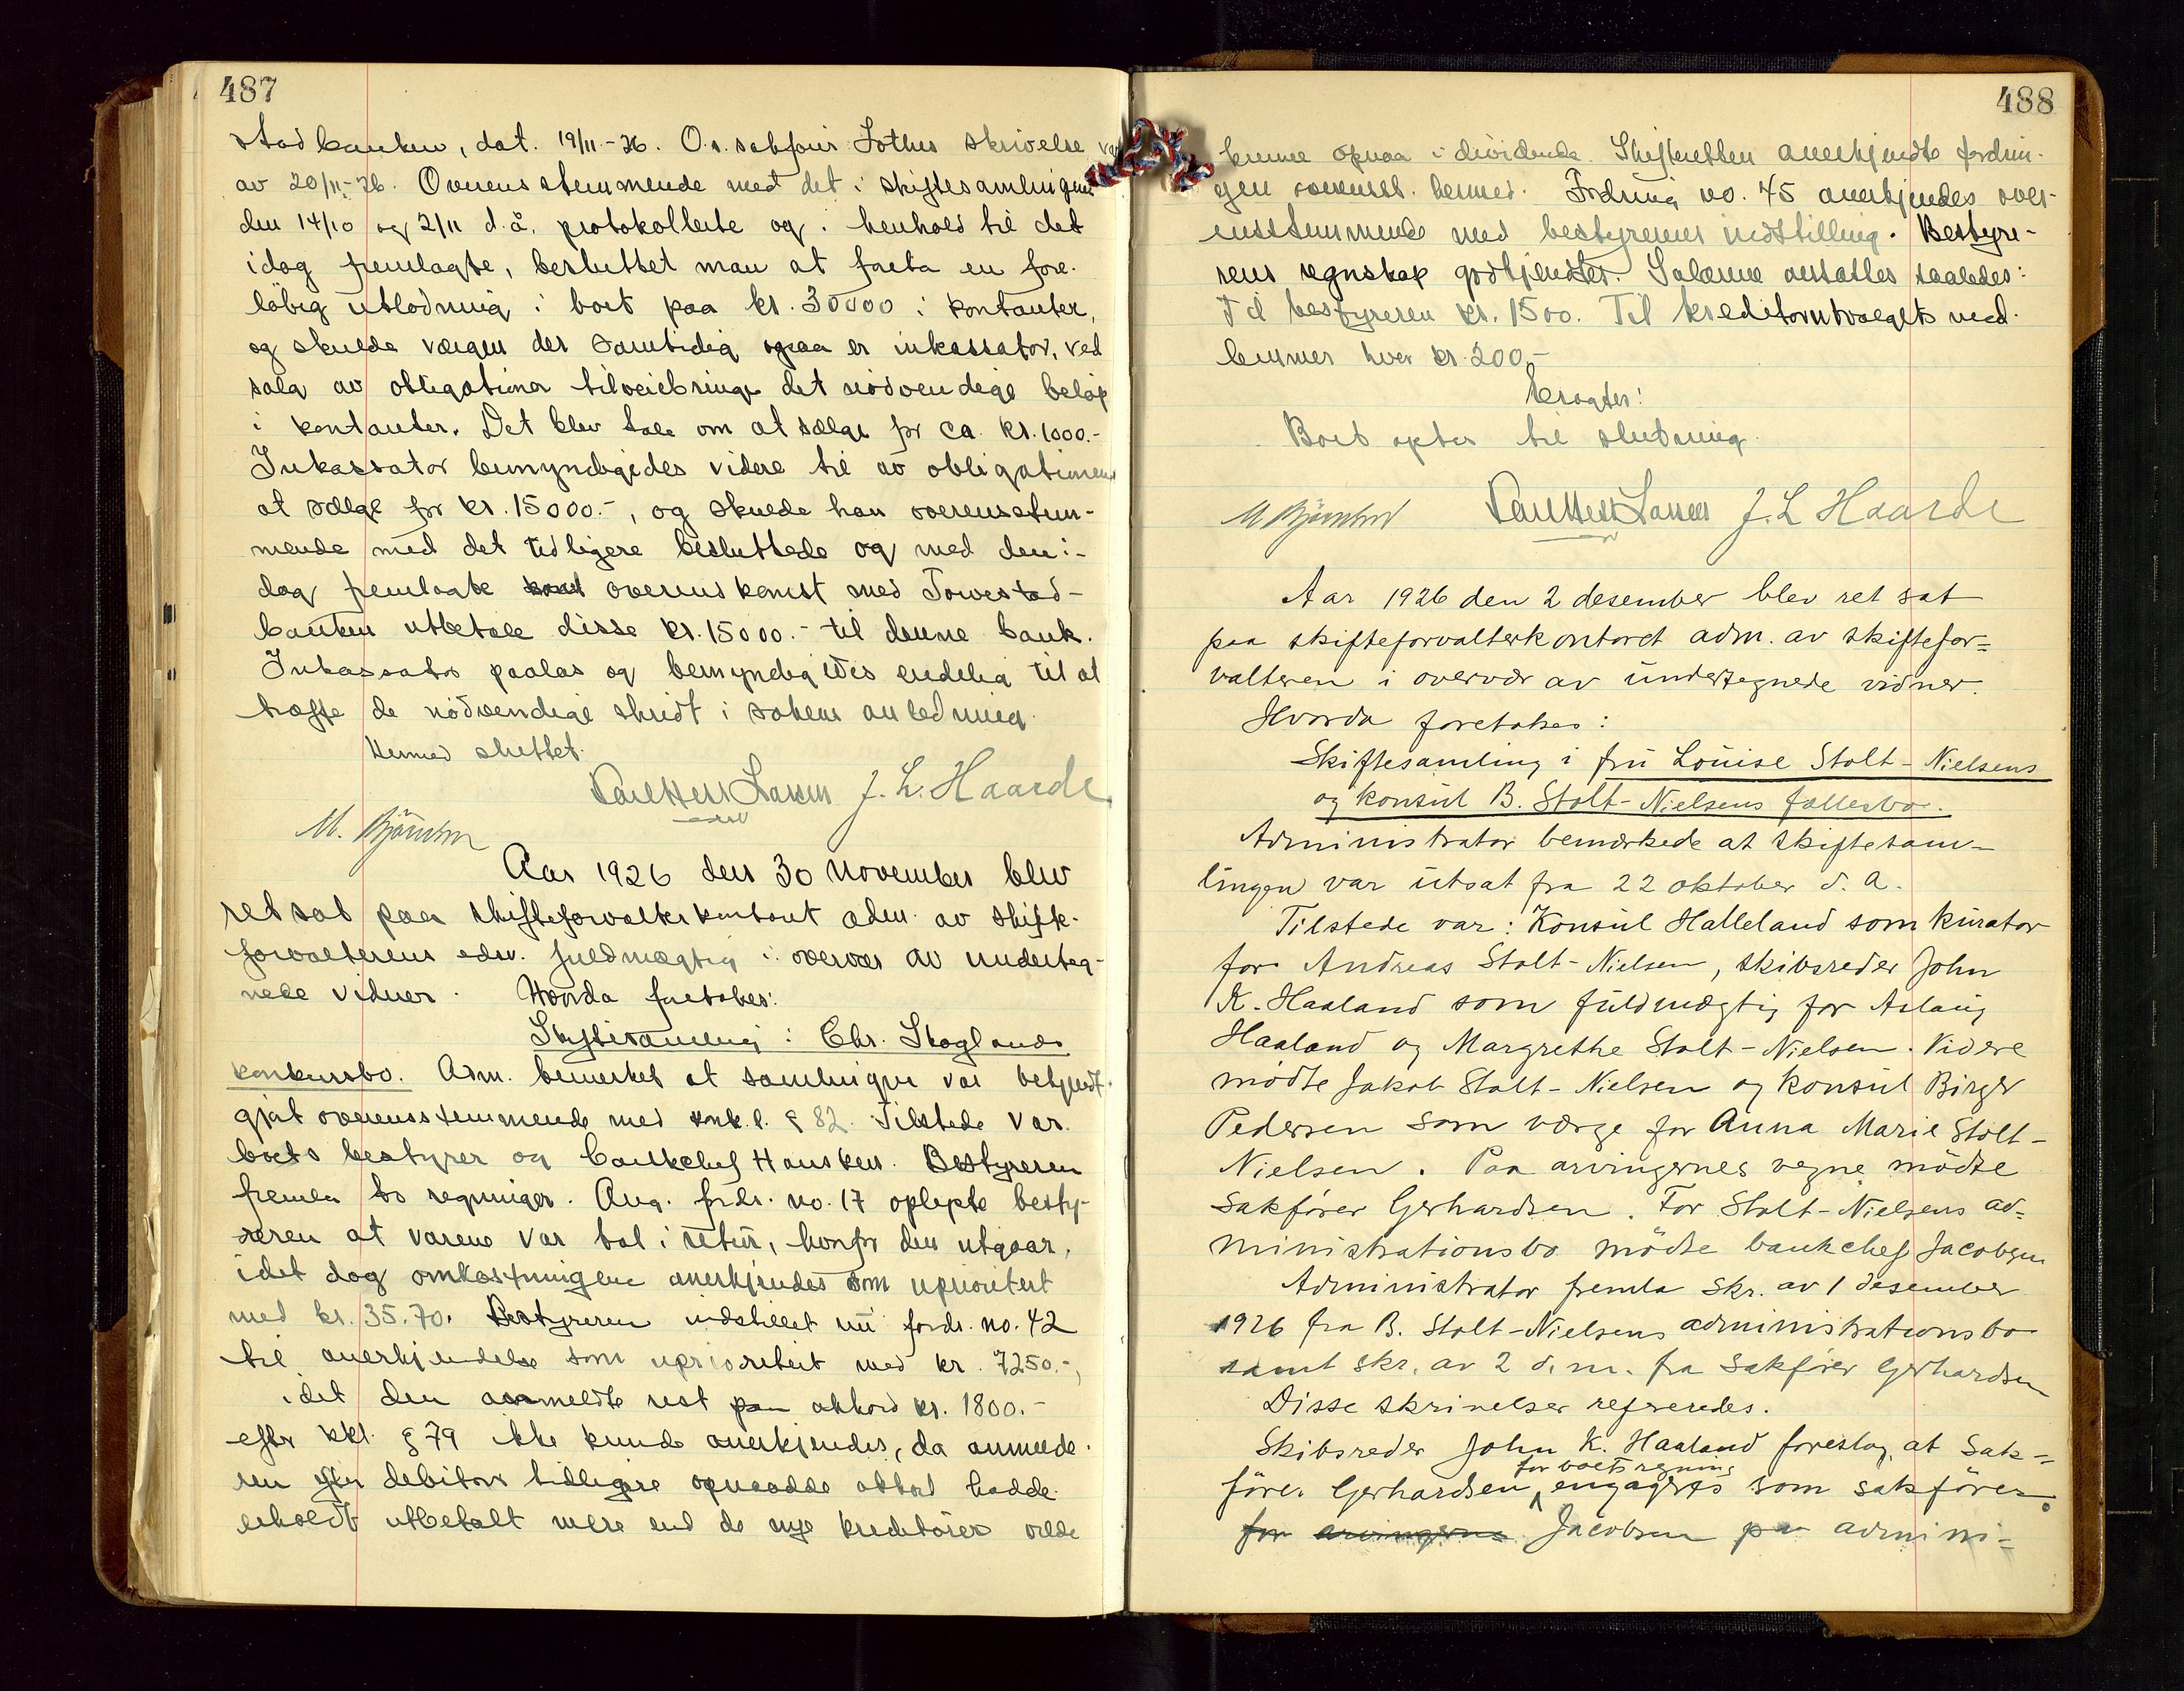 487
stadbanken, dat. 19/11-26. O.r.sakfører Lothes skrivelse var
av 20/11-26. Overensstemmende med det i skiftesamlingene
den 14/10 og 2/11 d.å. protokollerte og i henhold til det
idag fremlagte, besluttet man at foreta en fore-
løbig utlodning i boet paa kr. 30000 i kontanter,
og skulde vergen der samtidig ogsaa er inkassator, ved
salg av obligationer tilveiebringe det nødvendige beløp
i kontanter. Det blev tale om at sælge for ca. kr. 1000.-
Inkassator bemyndigedes videre til av obligationene
at sælge for kr. 15000.-, og skulde han overensstem-
mende med det tidligere besluttede og med den i-
dag fremlagte overenskomst med Torvestad-
banken utbetale disse kr. 15000.- til denne bank.
Inkassator paalas og bemyndigedes endelig til at
træffe de nødvendige skridt i sakens anledning.
Hermed sluttet.
J. L. Haarde
Aar 1926 den 30 november blev
ret sat paa skifteforvalterkontoret adm. av skifte-
forvalterens edsv. fuldmægtig i overvær av underteg-
nede vidner. Hvorda foretokes:
Skiftesamling i Chr. Skoglands
konkursbo. Adm. bemerket at samlingen var bekjendt-
gjort overensstemmende med konk.l. § 82. Tilstede var
boets bestyrer og banksjef Hansken. Bestyreren
fremla to regninger. Ang. fordr. no. 17 oplyste besty-
reren at varene var tat i retur, hvorfor den utgaar,
idet dog omkostningene anerkjendes som uprioritert
med kr. 35.70. Bestyreren indstillet nu fordr. no. 42
til anerkjendelse som uprioritert med kr. 7250.-,
idet den anmeldte rest paa akkord kr. 1800.-
efter kkl. § 79 ikke kunde anerkjendes, da anmelde-
ren efter debitors tidligere opnaadde akkord hadde
erholdt utbetalt mere end de nye kreditorer vilde
488
kunne opnaa i dividende. Skifteretten anerkjendte fordrin-
gen overenst. hermed. Fordring no. 45 anerkjendes over-
ensstemmende med bestyrerens indstilling. Bestyre-
rens regnskap godkjendtes. Salærene ansattes saaledes:
Til bestyreren kr. 1500. Til kreditorutvalgets med-
lemmer hver kr. 200,-
Eragtes:
Boet optas til slutning.
J. L. Haarde
Aar 1926 den 2 desember blev ret sat
paa skifteforvalterkontoret adm. av skiftefor=
valteren i overvær av undertegnede vidner.
Hvorda foretokes:
Skiftesamling i fru Louise Stolt-Nielsens
og konsul B. Stolt-Nielsens fællesbo.
Administrator bemærkede at skiftesam-
lingen var utsat fra 22 oktober d. a.
Tilstede var: Konsul Halleland som kurator
for Andreas Stolt-Nielsen, skibsreder John
K. Haaland som fuldmægtig for Aslaug
Haaland og Margrethe Stolt-Nielsen. Videre
mødte Jakob Stolt-Nielsen og konsul Birger
Pedersen som værge for Anna Marie Stolt-
Nielsen. Paa arvingernes vegne mødte
sakfører Gerhardsen. For Stolt-Nielsens ad=
ministrationsbo mødte bankchef Jacobsen
Administrator fremla skr. av 1 desember
1926 fra B. Stolt-Nielsens administrationsbo
samt skr. av 2 d.m. fra sakfører Gerhardsen
Disse skrivelser refereredes.
Skibsreder John K. Haaland foreslog at sak=
for boets regning
fører Gerhardsen engageres som sakfører.
for arvingerne Jacobsen paa admini=